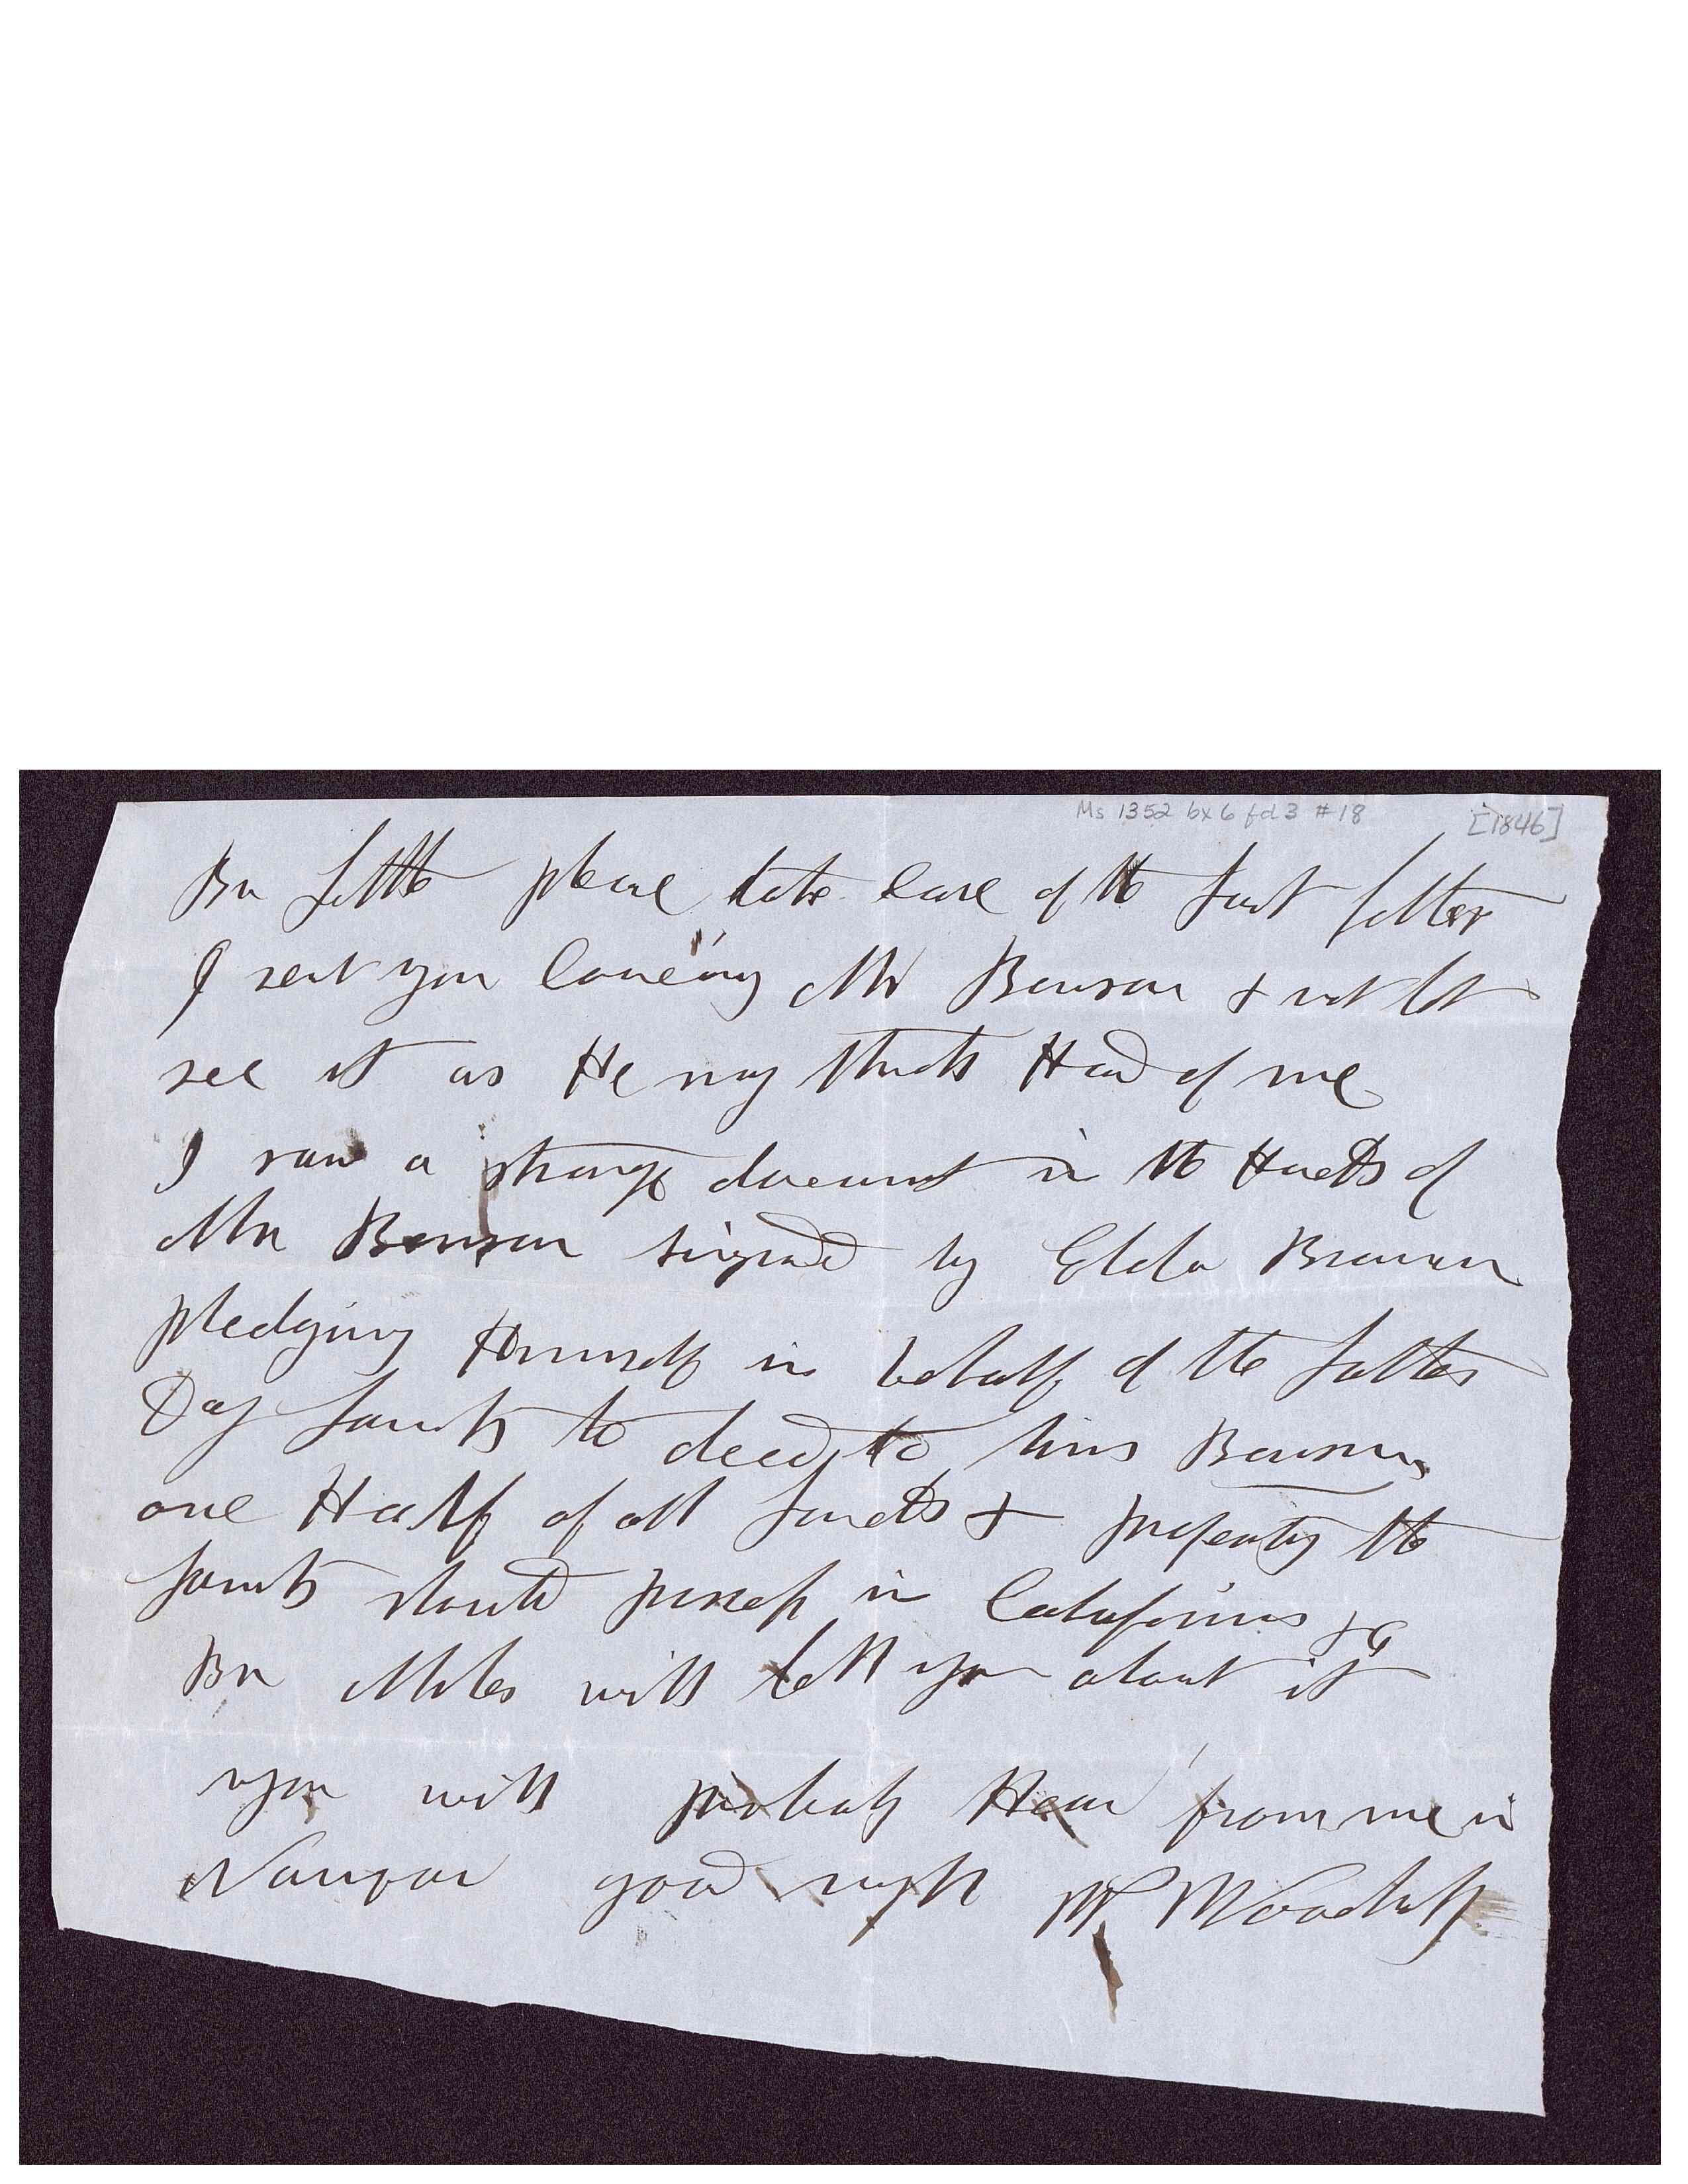 Ms 1352 bx 6 fd 3 #18 [1846]
Br Little please take care of the first letter
I sent you conce'ing Mr Benson & not let
see it as He may think Hard of me
I saw a strange document in the Hands of
Mr Benson signed by Elder Brannan
pledging Himself in behalf of the Latter
Day Saints to deed to him Benson
one Half of all Lands & property the
Saints should possess in California &c
Br Miles will tell you about it
you will probably Hear from me in
Nauvoo good night W Woodruff